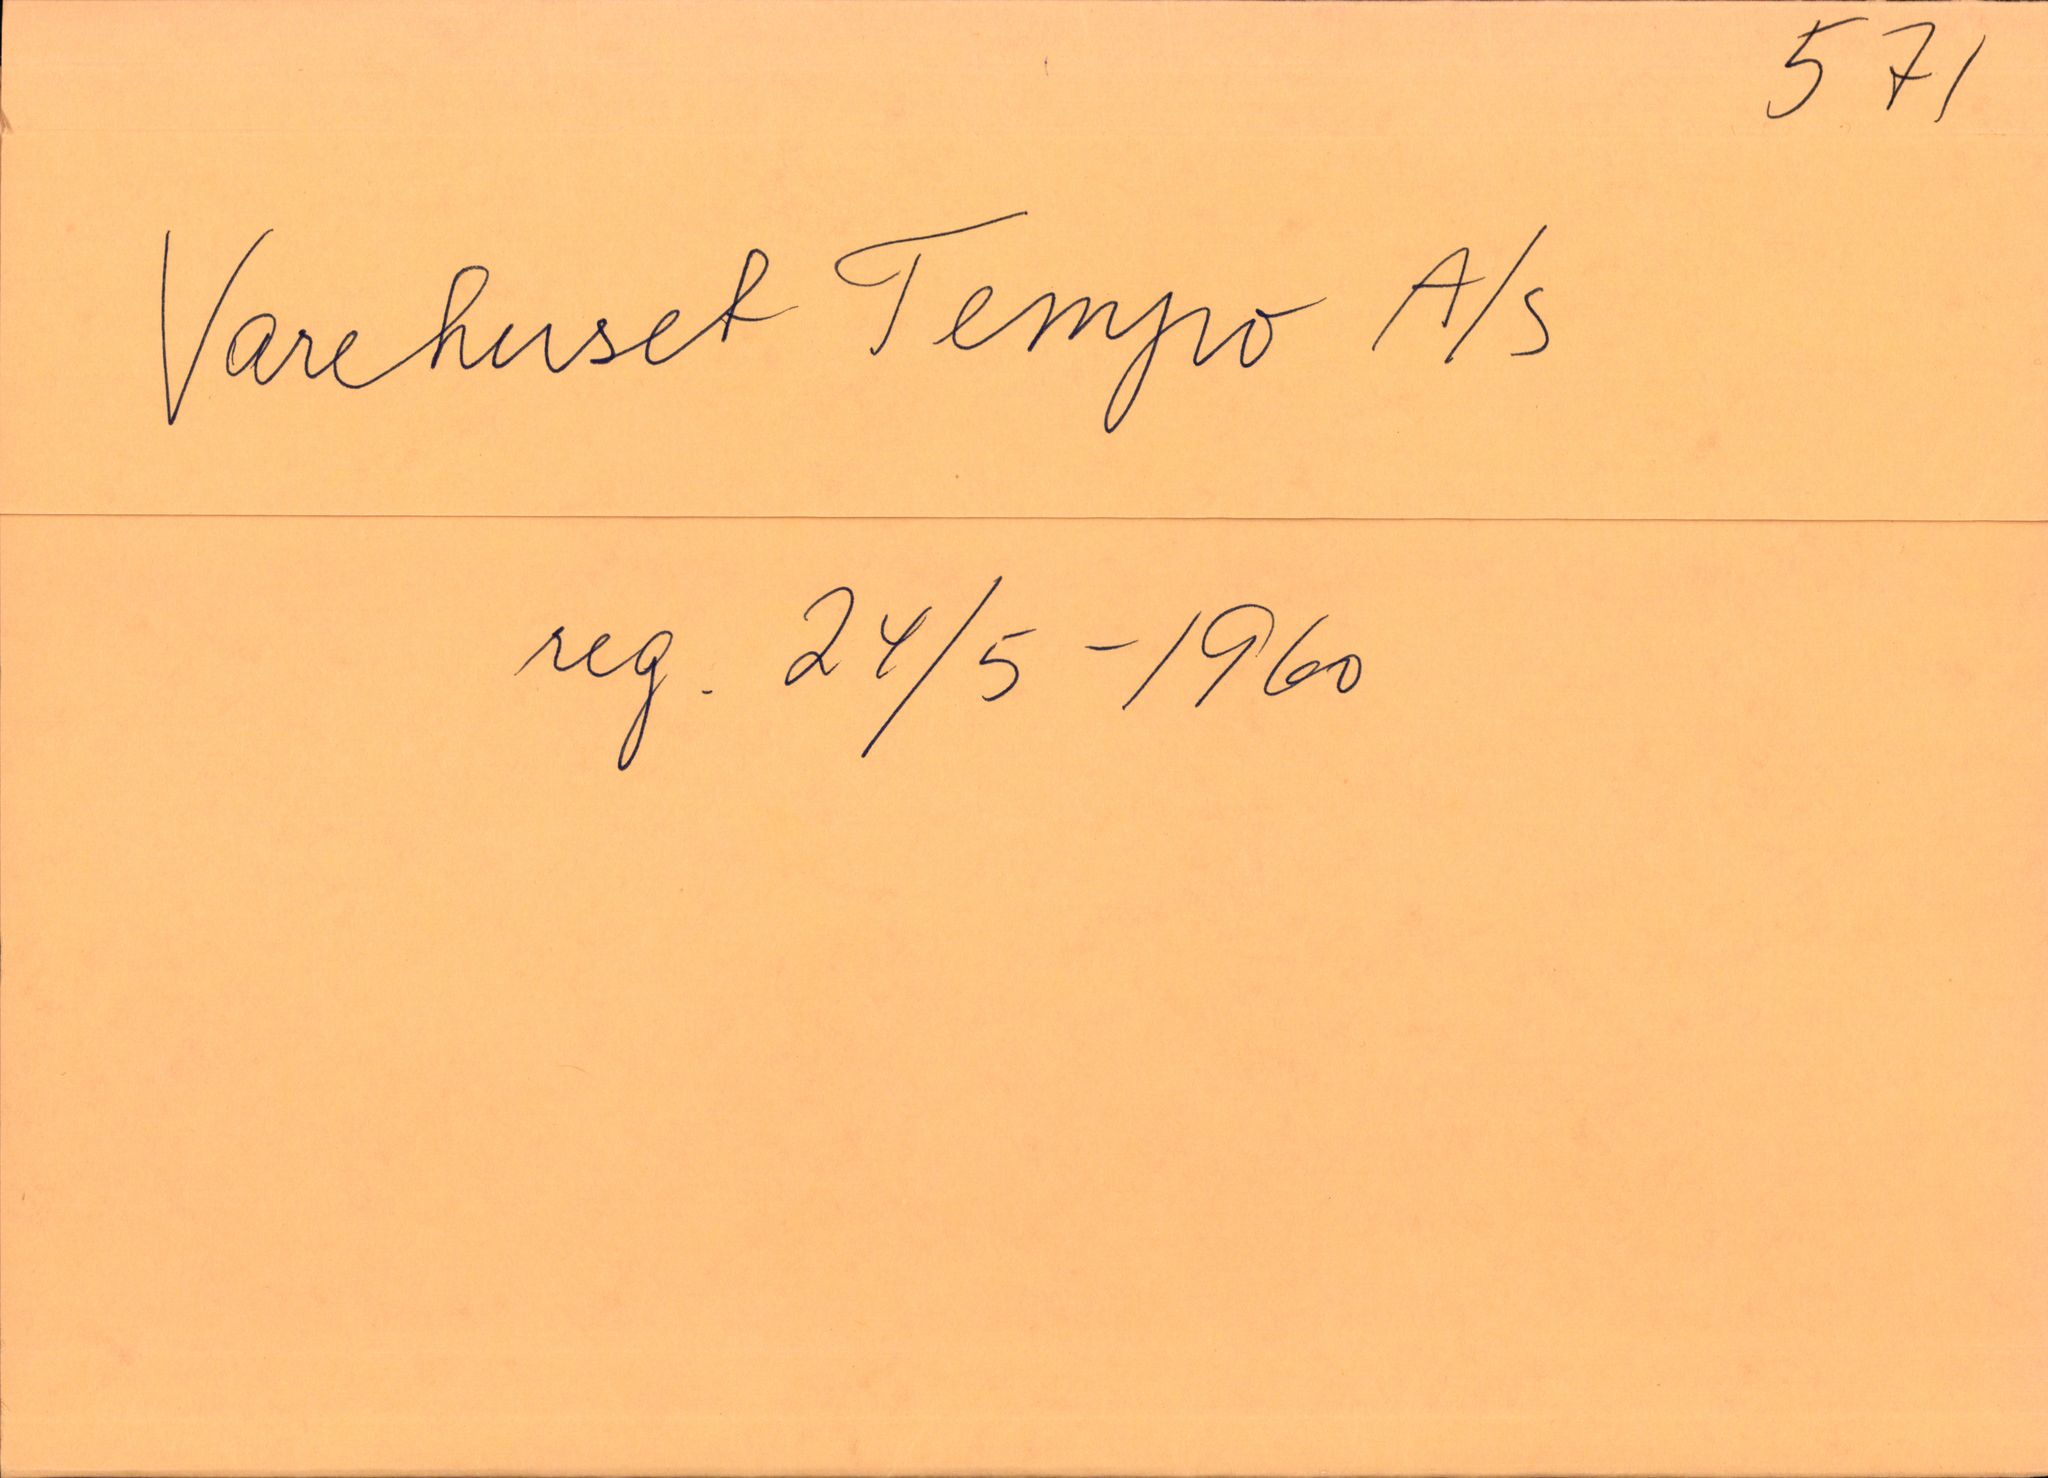 571
Varehuset Tempo A/s
reg. 24/5 - 1960